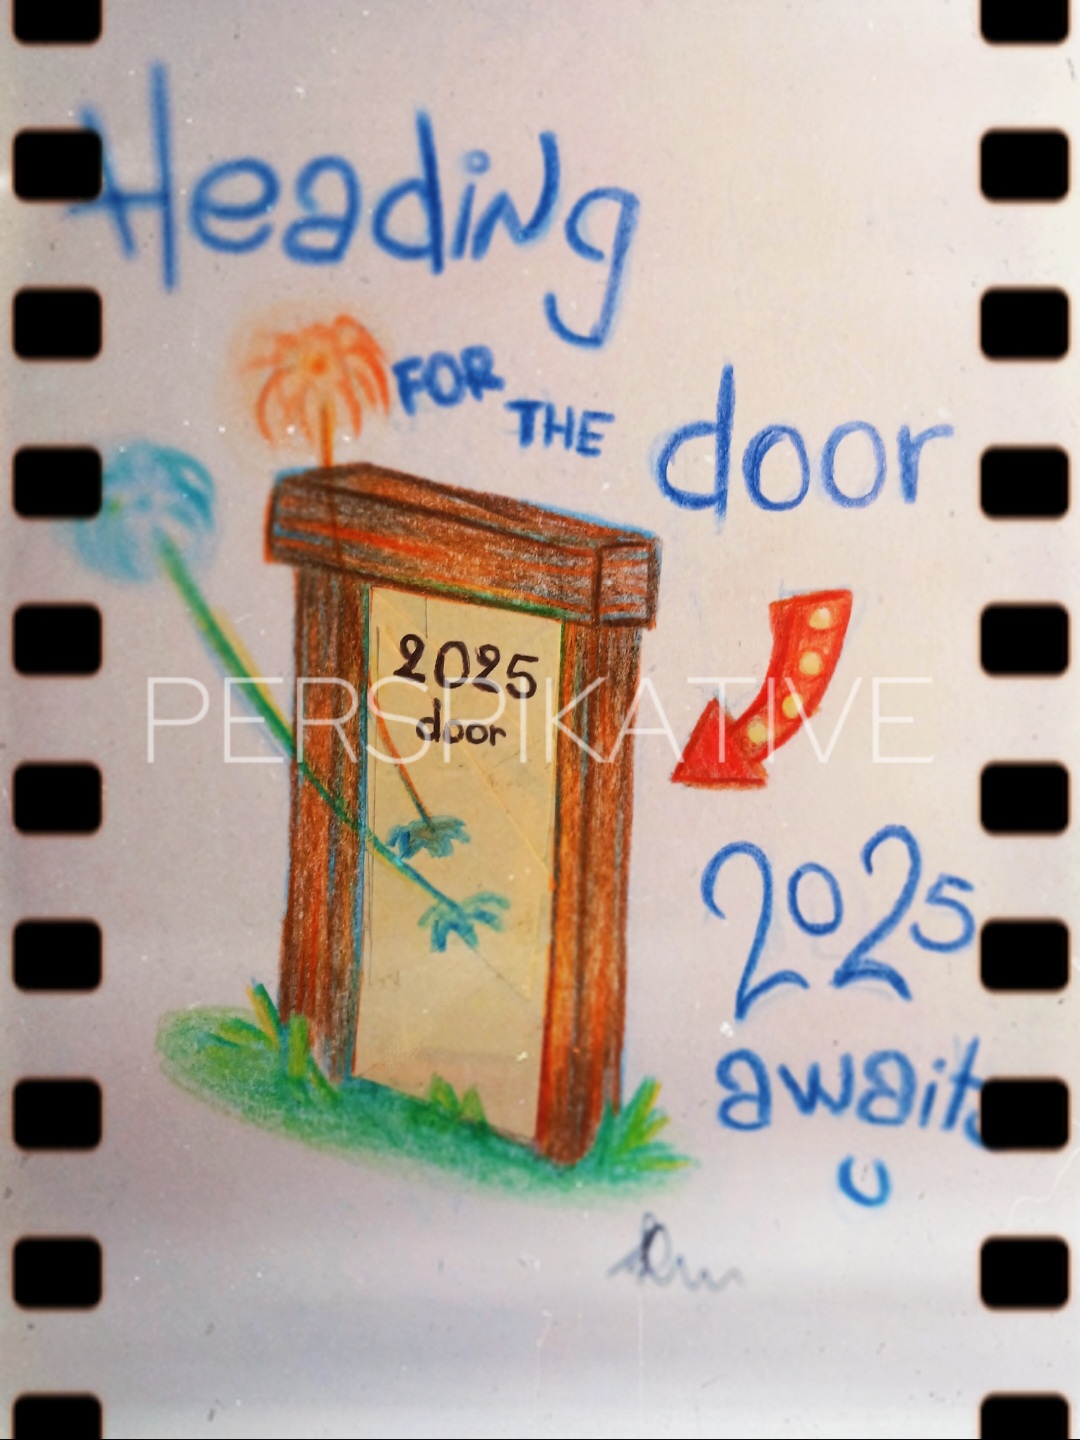 Heading
FOR THE door
2025
door
PERSPIKATIVE
2025
awaits